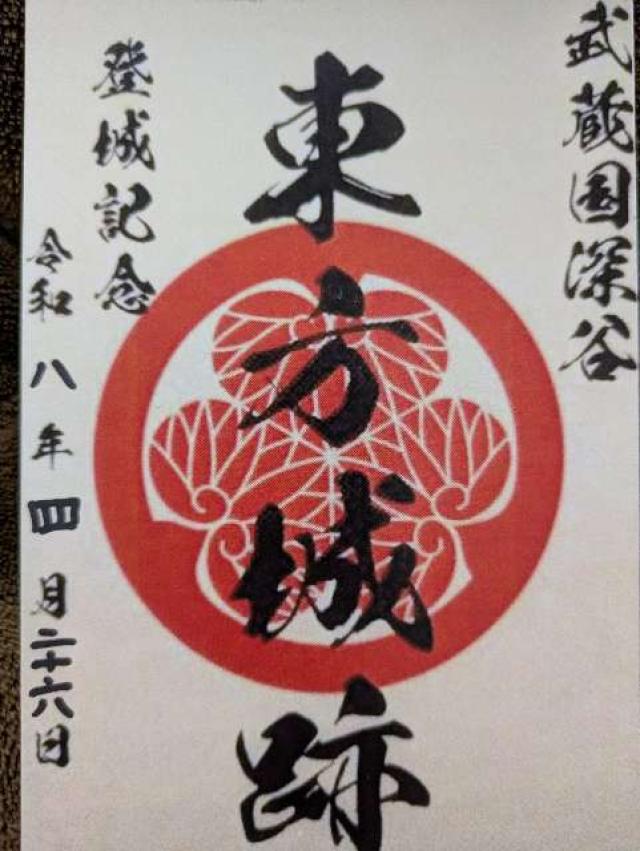 武蔵国深谷
東方城跡
登城記念
令和八年四月二十六日